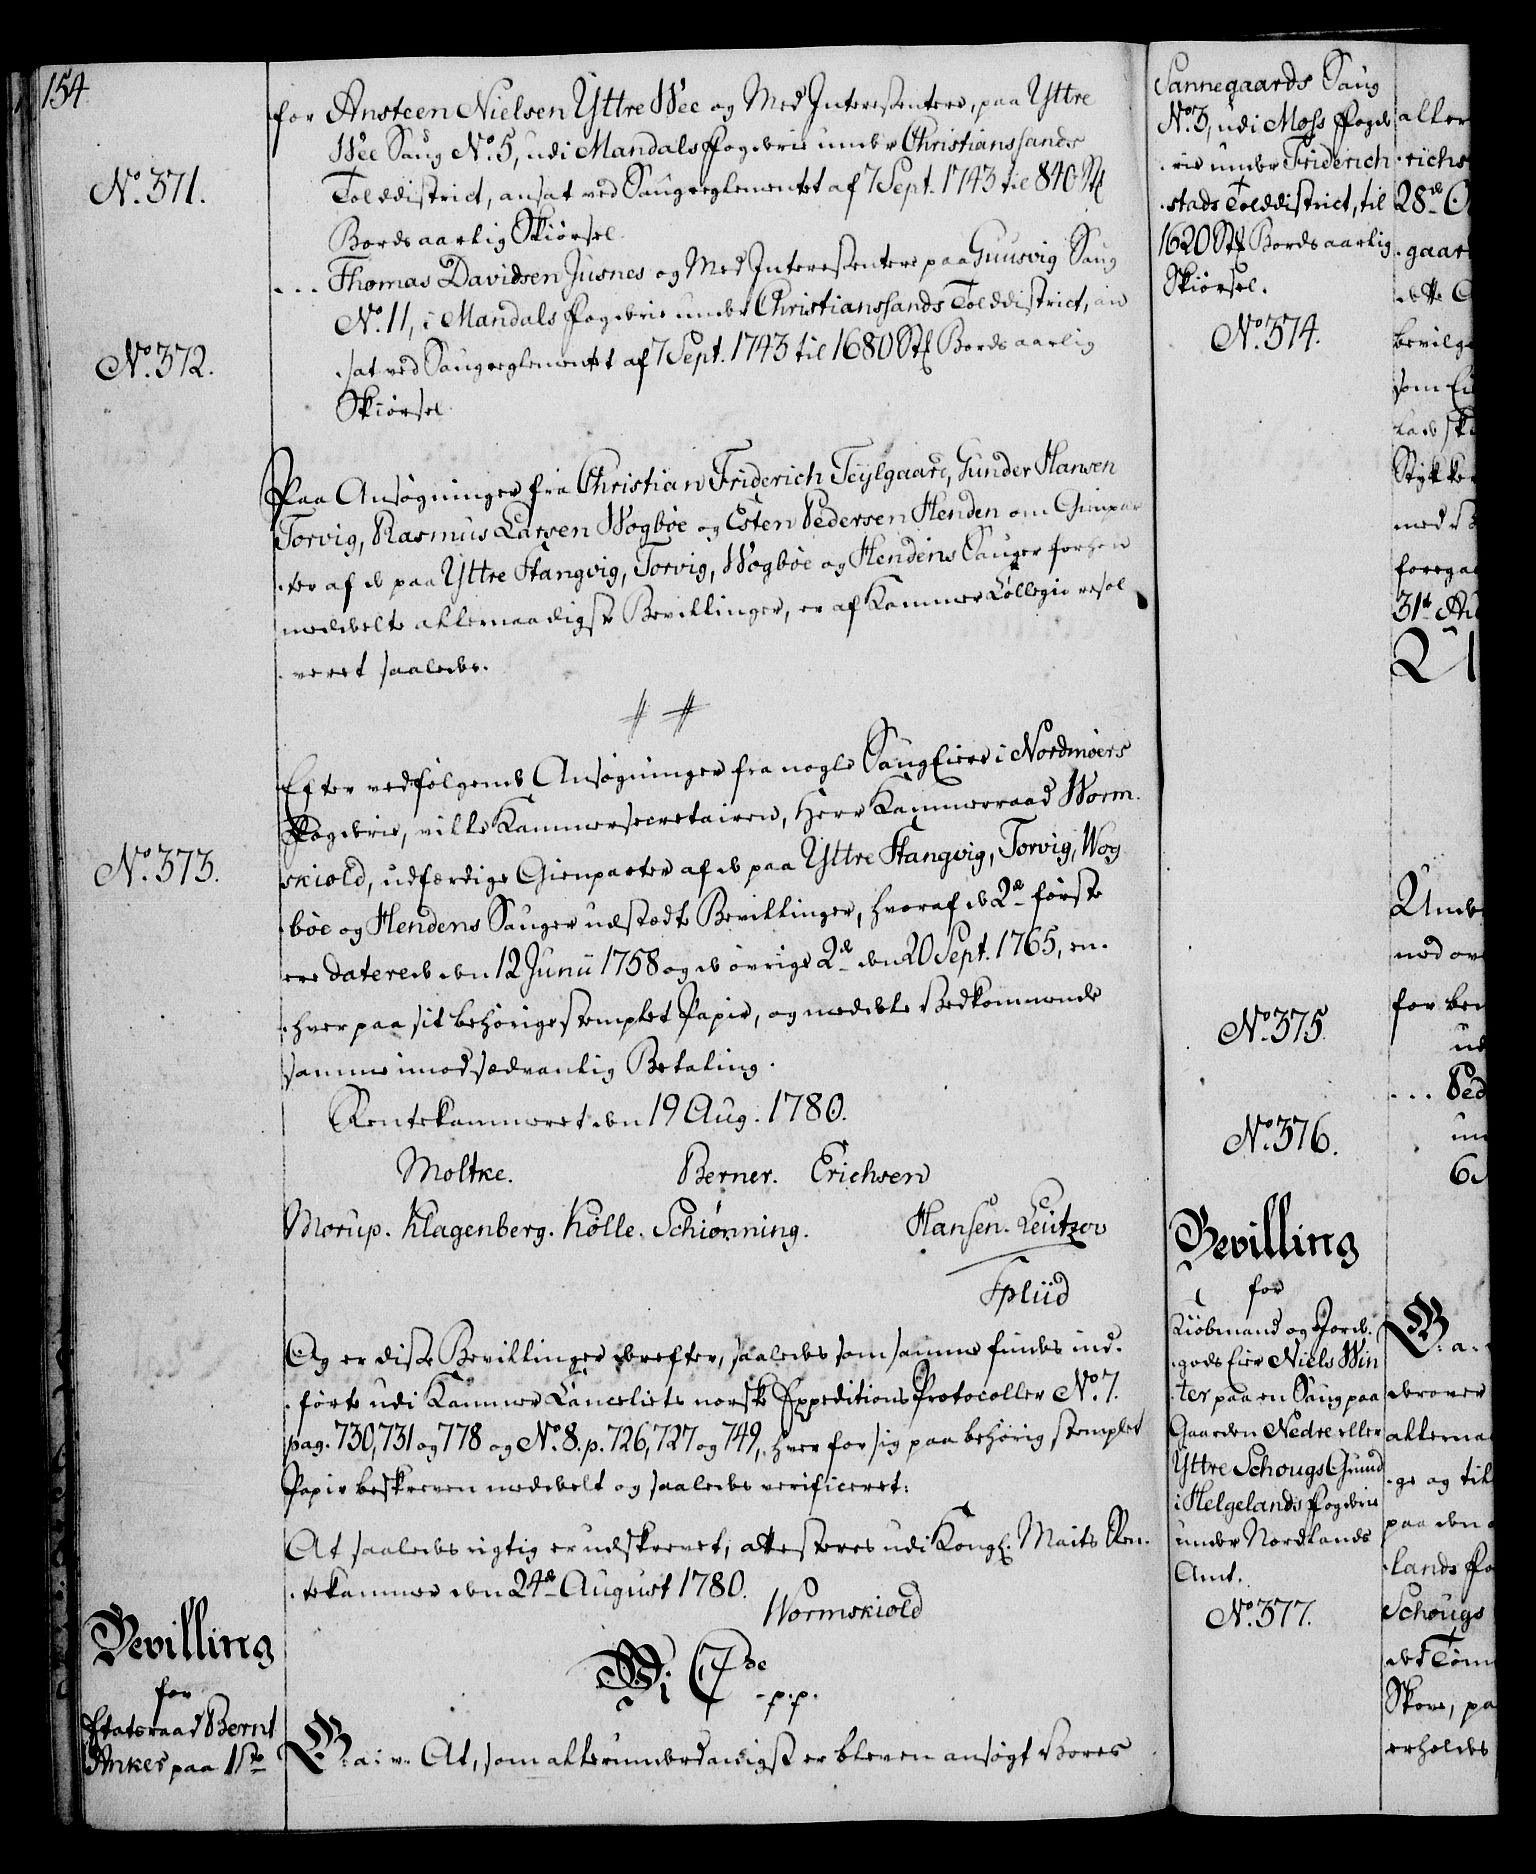 154
for Ansteen Nielsen Yttre Wee og Med Interessentere, paa Yttre
Wee Saug No. 5, udi Mandals Fogderie under Christianssands
No. 371.
Tolddistrict, ansat ved Saugreglementet af 7 Sept. 1743 til 840 Stk
Bords aarlig Skiørsel.
... Thomas Davidsen Jusnes og Med Interessentere paa Guusvig Saug
No. 11, i Mandals Fogderie under Christianssands Tolddistrict, an
No. 372.
sat ved Saugreglementet af 7 Sept. 1743 til 1680 Stk Bords aarlig
Skiørsel.
Paa Ansøgninger fra Christian Friderich Teylgaard, Gunder Hansen
Torvig, Rasmus Larsen Wogbøe og Esten Pedersen Henden om Gienpar
ter af de paa Yttre Stangvig, Torvig, Wogbøe og Hendens Sauger forhen
meddelte allernaadigste Bevillinger, er af Kammer Collegio resol
veret saaledes.
Efter vedfølgende Ansøgninger fra nogle Saug Eiere i Nordmøers
Fogderie, ville Kammersecretairen, Herr Kammerraad Worm-
No. 373.
skiold, udfærdige Gienparter af de paa Yttre Stangvig, Torvig, Wog
bøe og Hendens Sauger udstædte Bevillinger, hvoraf de 2de første
ere daterede den 12 Junii 1758 og de øvrige 2de den 20 Sept. 1765, en-
hver paa sit behørige stemplet Papir, og meddele Vedkommende
samme imod sædvanlig Betaling.
Rentekammeret den 19 Aug. 1780.
Moltke. Berner. Erichsen
Morup. Klagenberg. Kølle. Schiønning. Hansen. Leutzov
Spliid
Og er disse Bevillinger derefter, saaledes som samme findes ind-
førte udi Kammer Cancelliets norske Expeditions Protocoller No. 7.
pag. 730, 731 og 778 og No. 8. p. 726, 727 og 749, hver for sig paa behørig stemplet
Papir beskreven meddelt og saaledes verificeret:
At saaledes rigtig er udskrevet, attesteres udi Kongl. Maits Ren-
tekammer den 24de August 1780.
Wormskiold
Bevilling
for
Etatsraad Bernt
Anker paa 1ste
Wi C 7de p. p.
G: a: v: At, som allerunderdanigst er bleven ansøgt Vores
Sannegaards Saug
No. 3, udi Moss Fogde
rie under Friderich
stads Tolddistrict, til
1620 Stk Bords aarlig
Skiørsel.
No. 374.
No. 375.
No. 376.
Bevilling
for
Kiøbmand og Jorde-
gods Eier Niels Win
ter paa en Saug paa
Gaarden Nedre eller
Yttre Schougs Grund
i Helgelands Fogderie
under Nordlands
Amt.
No. 377.
aller
richs
28de O
gaar
dette
bevilg
som Ei
Stykker
med
foregaa
31te Au
Unde
ned
for ben
ud
... Ped
un
G: a:
derover
allerna
ge og til
paa den
lands Fo
Schougs
det Tøm
Skove, pa
erholdes